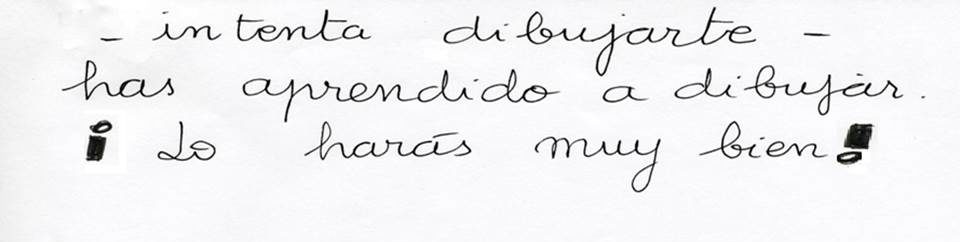 - intenta dibujarte -
has aprendido a dibujar.
¡Lo harás muy bien!